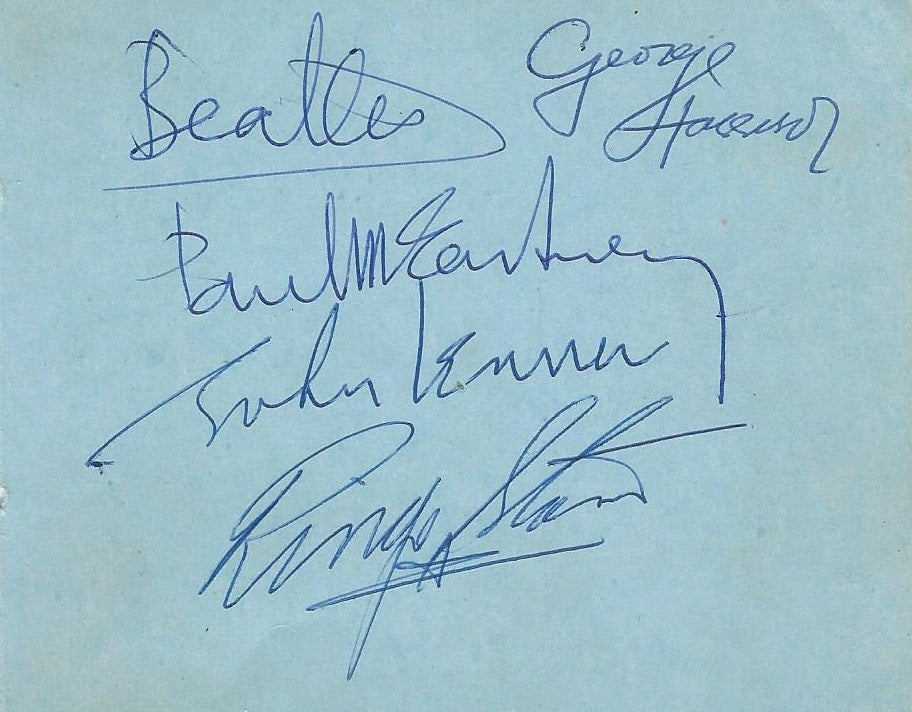 Beatles George
Harrison
Paul McCartney
John Lennon
Ringo Starr